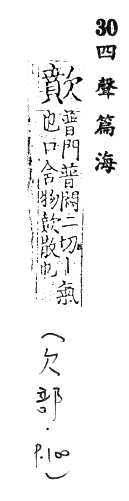 30 四聲篇海
歕 普門普悶二切卜氣
也口含物歕散也
(欠部.
P.100)